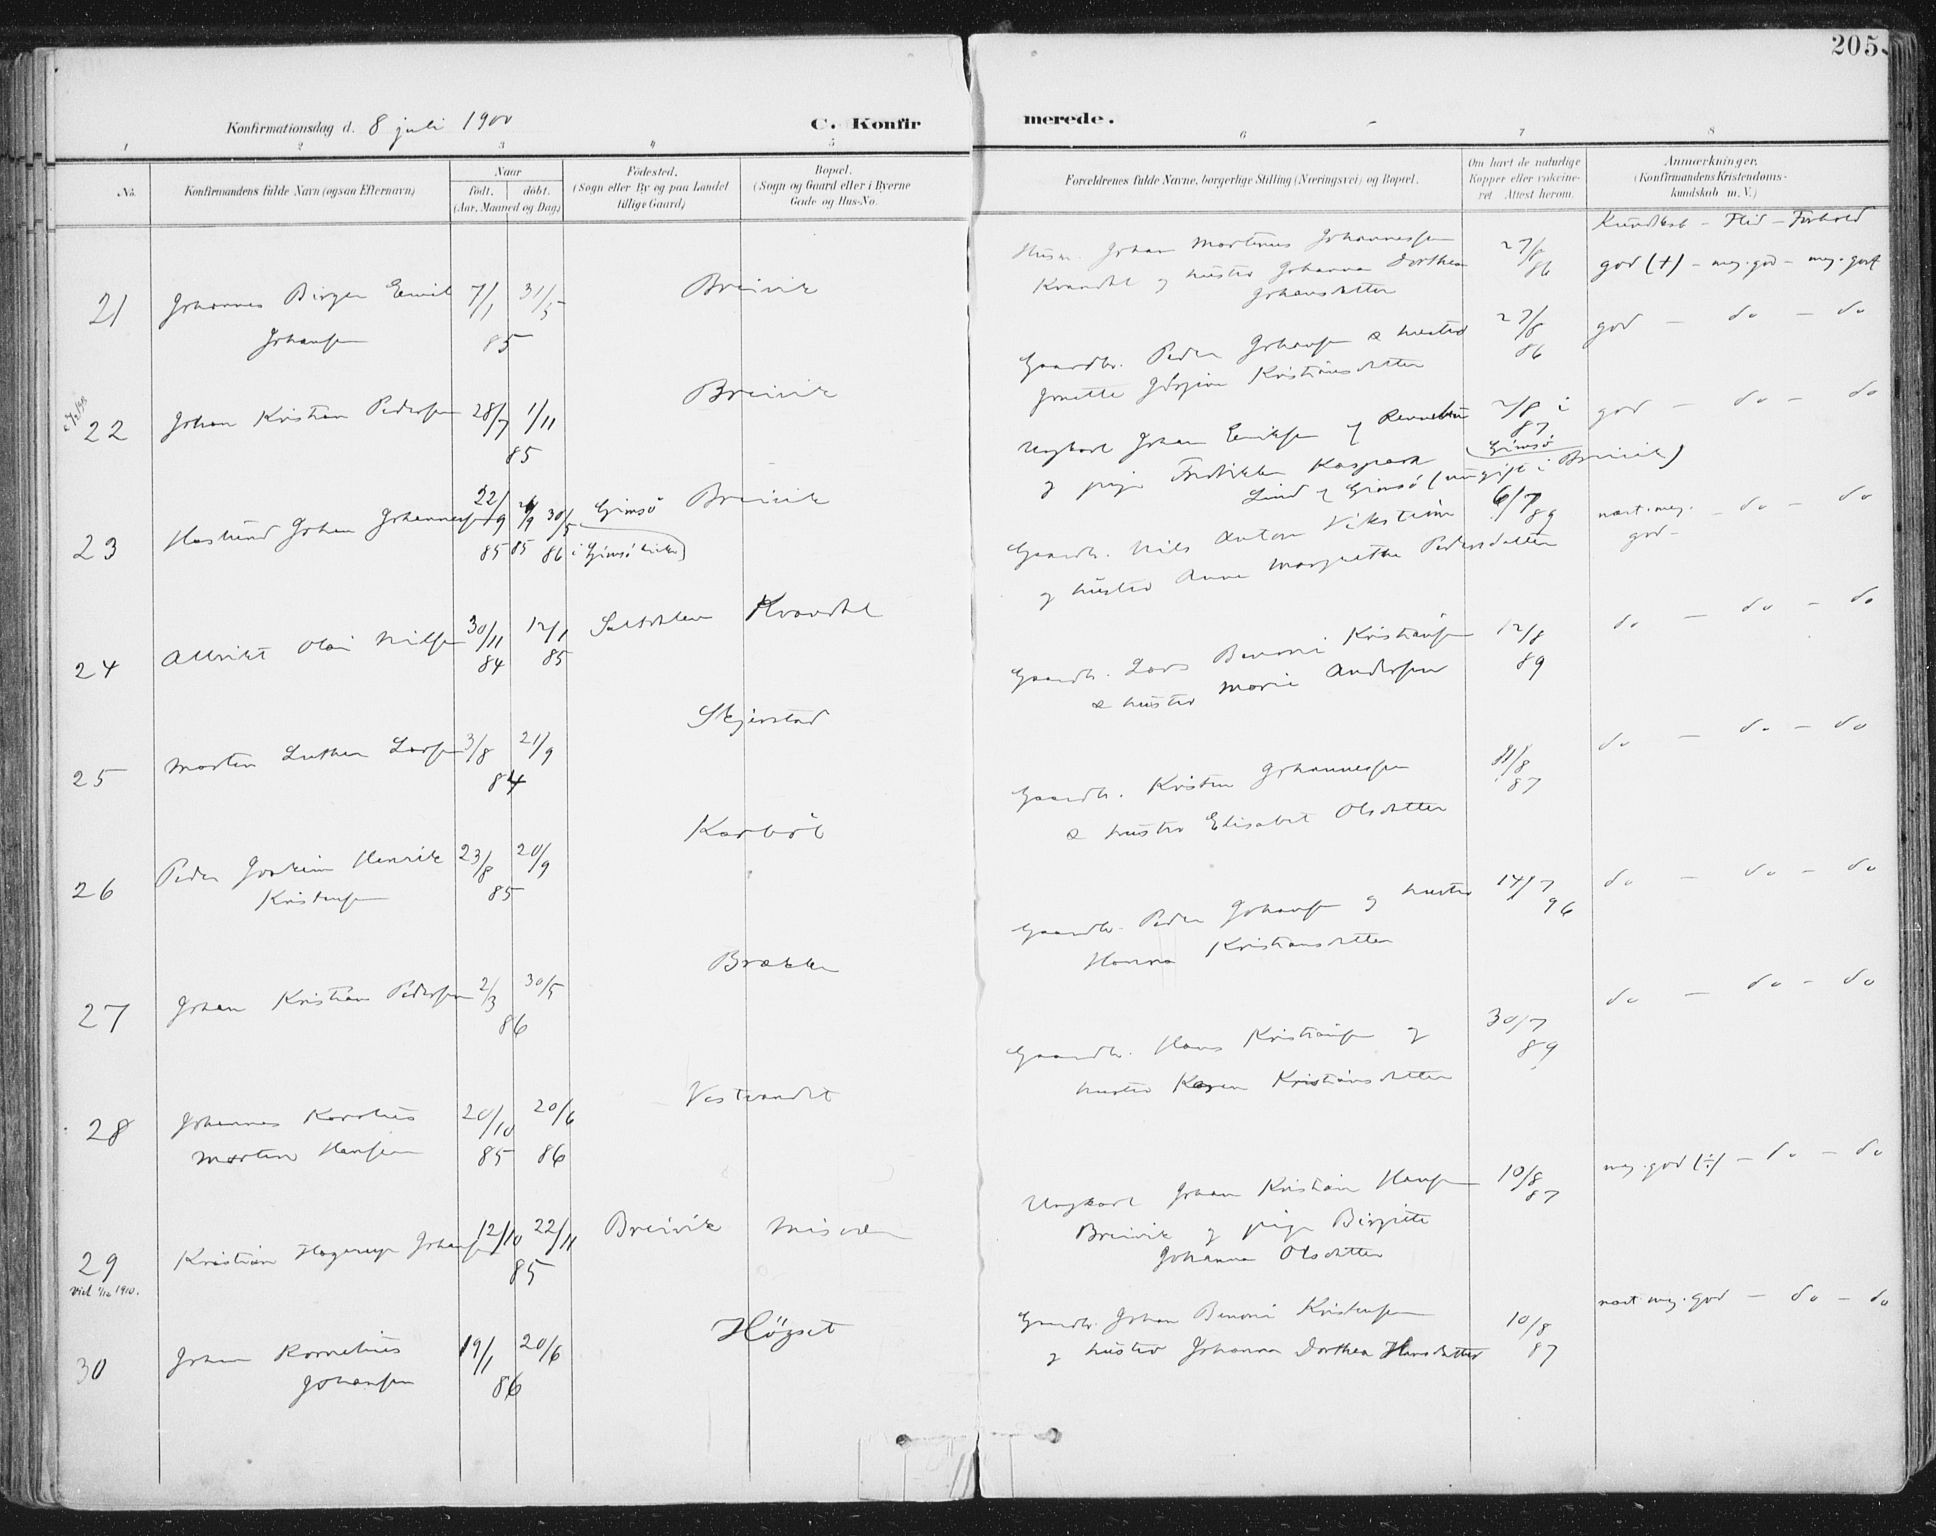 205.
Konfirmationsdag d. 8 juli 1900
C. Konfirmerede.
1 2 3 4 5 6 7 8
No.
Konfirmandens fulde Navn (ogsaa Efternavn)
Naar
født. døbt.
(Aar, Maaned og Dag.)
Fødested.
(Sogn eller By og paa Landet
tillige Gaard)
Bopæl.
(Sogn og Gaard eller i Byerne
Gade og Hus-No.
Forældrenes fulde Navne, borgerlige Stilling (Næringsvei) og Bopæl.
Om havt de naturlige
Kopper eller vakcine-
ret Attest herom.
Anmærkninger.
(Konfirmandens Kristendoms-
kundskab m. V.)
Kundskab - Flid - Forhold
21 Johannes Birger Emil 7/1 31/5 Breivik
Johansen 85
Husm. Johan Martinus Johannessen 27/8
Kvandal og hustro Johanna Dorthea 86 god (+) - meg. god - meg. godt
Johansdatter
22 Johan Kristian Pedersen 28/7 1/11 Breivik
85
Gaardbr. Peder Johansen & hustro 27/8 god - do - do
Kristiansdatter 86
23 Johan Johannessen 22/9 30/5 Gimsø Breivik
85 85 86 i Gimsø kirke)
Ungkarl Johan Eriksen og 2/8 i god - do - do
87 Gimsø
og pige Fredrikke Kaspara
Lind af Gimsø (ungift i Breivik)
24 Albrikt Olai Nilsen 30/11 12/1 Kvandal
84 85
Gaardbr. Nils Anton Vikström 6/7 89 næst. meg. - do - do
og hustro Anne Margrethe Pedersdatter god -
25 Morten Luther Larsen 3/8 21/9 Skjerstad
84
Gaardbr. Lars Benoni Kristiansen 12/8 do - do - do
& hustro Marie Andersen 89
26 Peder Joakim Henrik 23/8 20/9 Karbøl
Kristensen 85
Gaardbr. Kristen Johannessen 11/8 do - do - do
& hustro Elisabet Olsdatter 87
27 Johan Kristian Pedersen 2/3 30/5 Brække
86
Gaardbr. Peder Johansen og hustro 14/7 do - do - do
Hanna Kristiansdatter 96
28 Johannes Kornelius 20/10 20/6 Vestvandet
Morten Hansen 85 86
Gaardbr. Hans Kristiansen og 30/7 do - do - do
hustro Karen Kristiansdatter 89
29 Kristian Hagerup Johansen 12/10 22/11 Breivik Misvær
Viet 1/12 1910. 85
Ungkarl Johan Kristian Hansen 10/8 meg. god (÷) - do - do
Breivik og pige Birgitte 87
Johanna Olsdatter
30 Johan Kornelius 19/1 20/6 Högset
Johansen 86
Gaardbr. Johan Benoni Kristensen 10/8 næst. meg. god - do - do
og hustro Johanna Dorthea Hansdatter 87